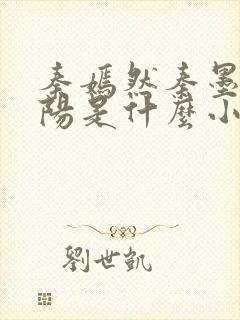 秦嫣然秦墨
陽是什麼小
劉世凱